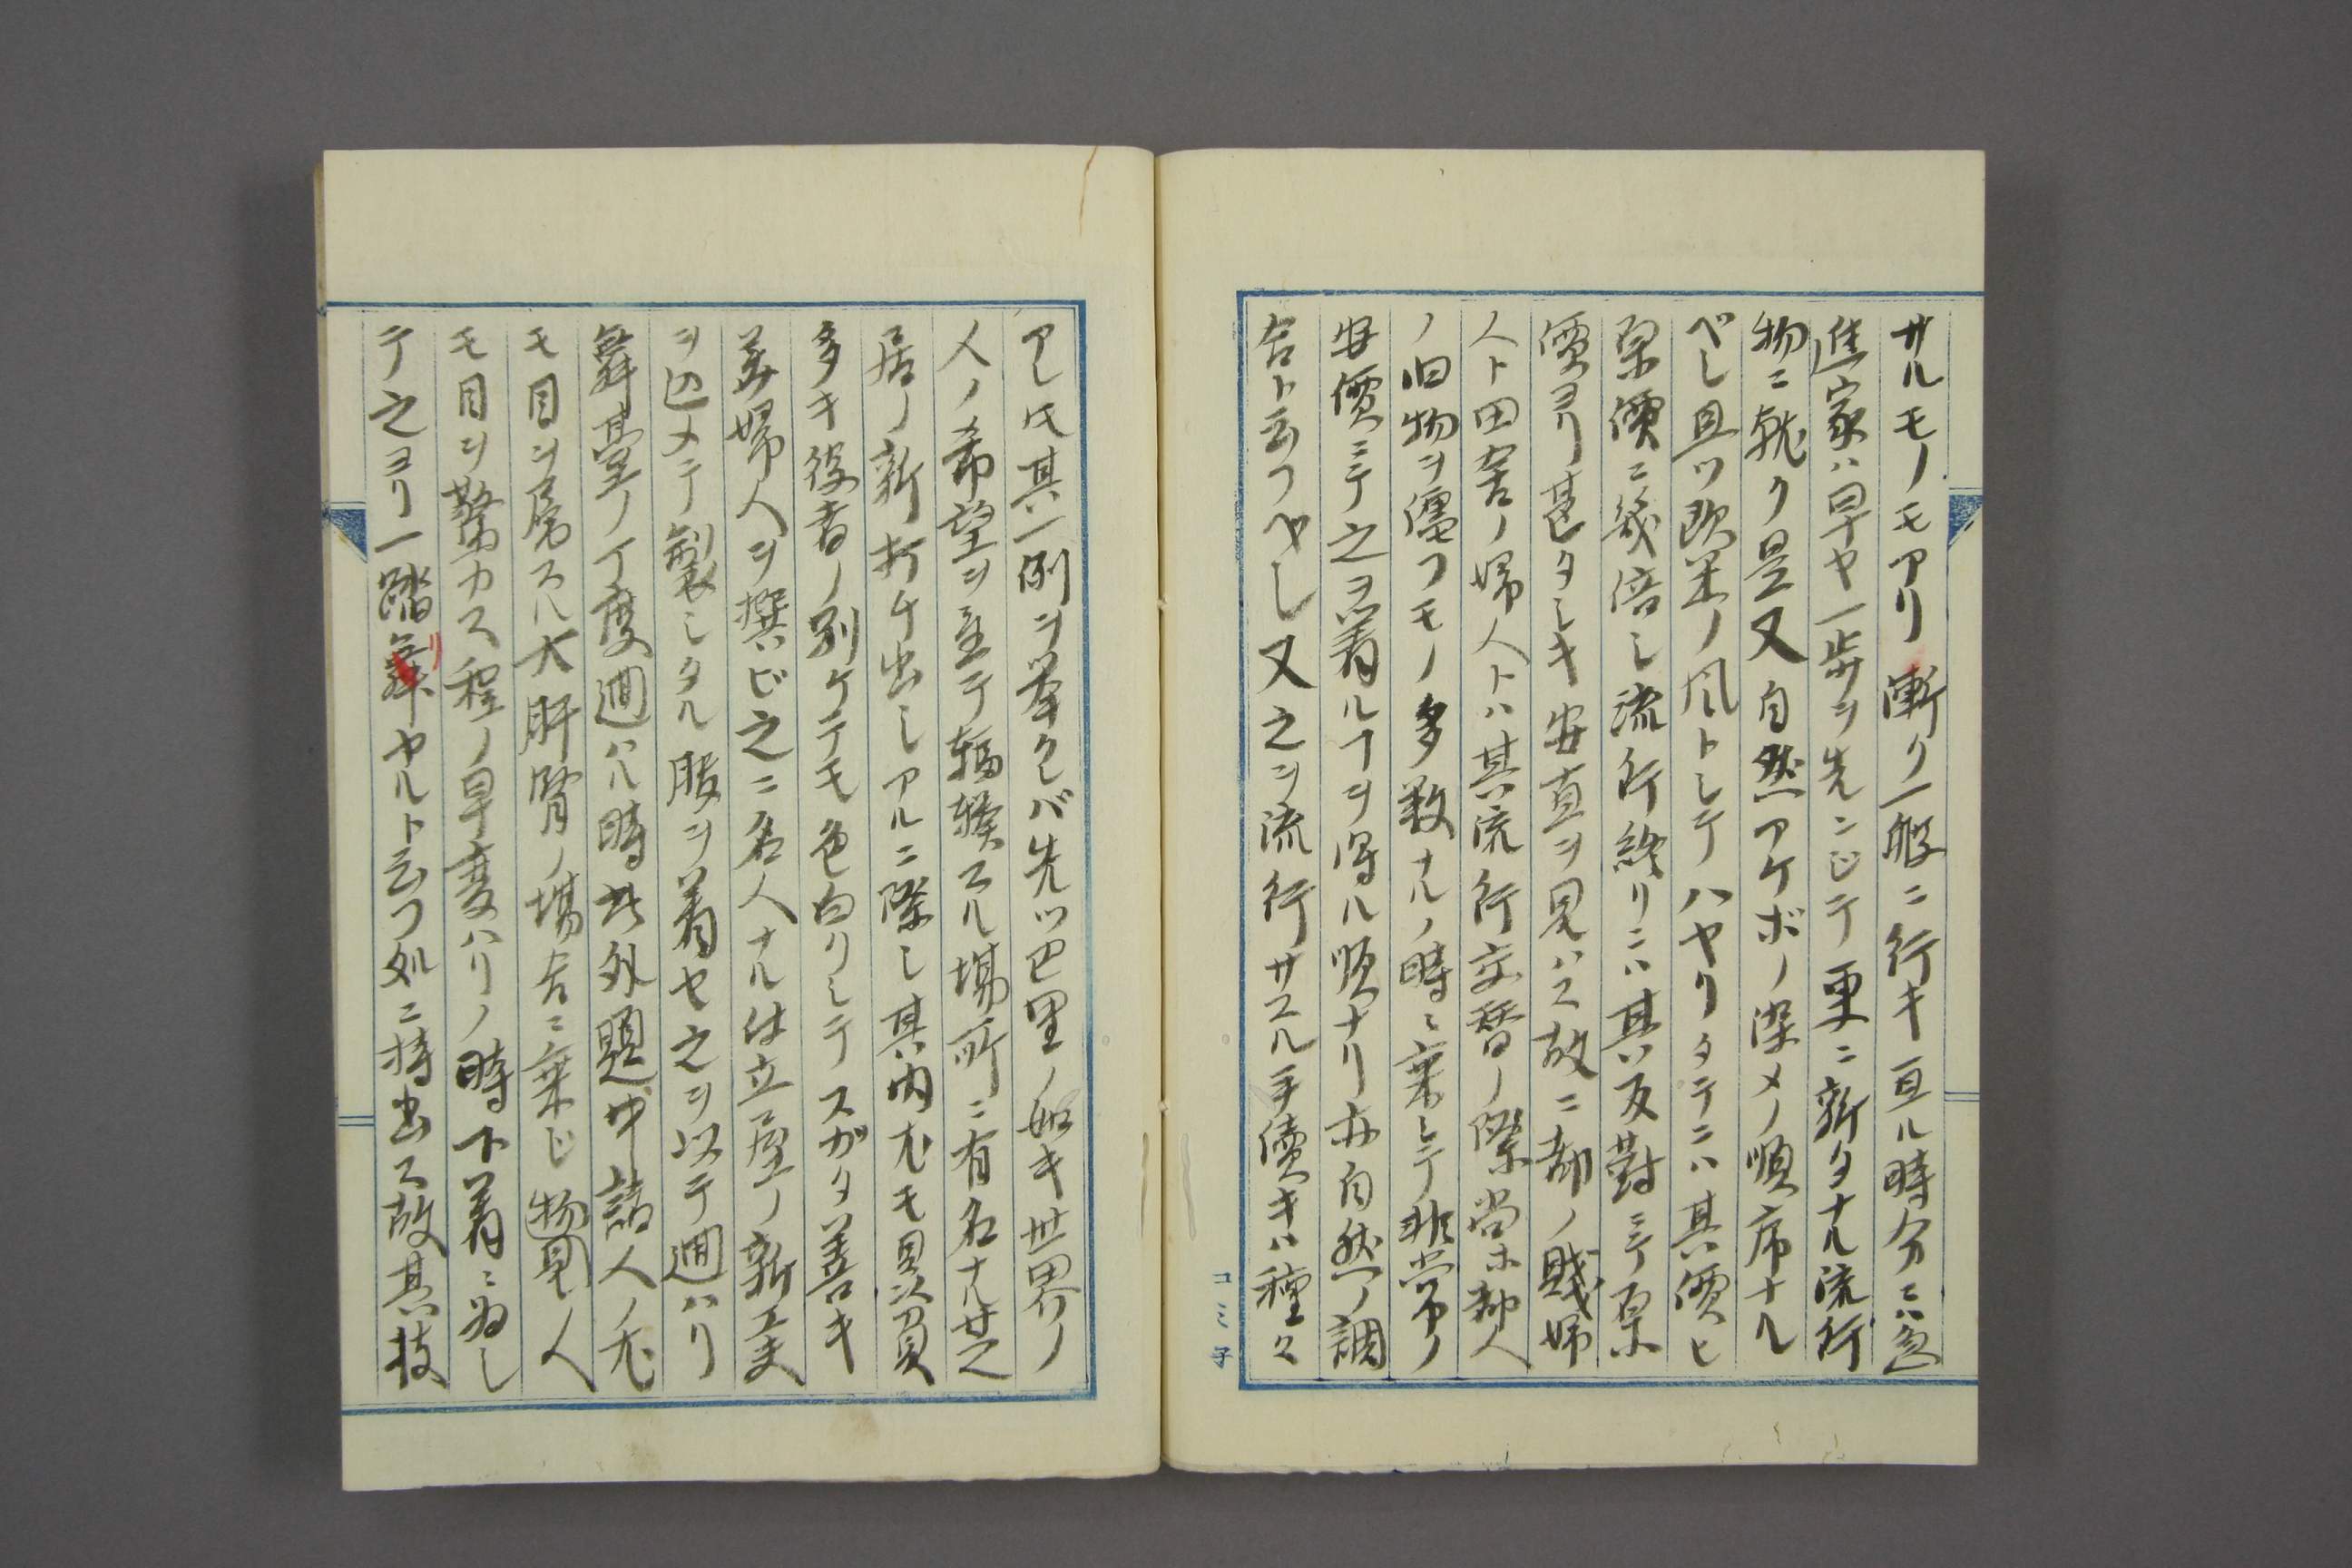 サルモノモアリ漸ク一般ニ行キ亘ル時分ニハ急
進家ハ早ヤ一歩ヲ先ンジテ更ニ新タナル流行
物ニ就ク是又自然アケボノ染メノ順席ナル
べし且ツ欧米ノ風トシテハヤリタテニハ其價ヒ
原價ニ幾倍シ流行終リニハ其反對ニテ原
價ヨリ甚タシキ安直ヲ見ハス故ニ都ノ賤婦
人ト田舎ノ婦人トハ其流行交替ノ際尚ホ都人
ノ旧物ヲ償フモノ多数ナルノ時ニ乗シテ非常ノ
安價ニテ之ヲ着ルヿヲ得ル順ナリ亦自然ノ調
合ト云フベし又之ヲ流行サスル手續キハ種々
コミ子
アレ𪜈其一例ヲ挙クレバ先ツ巴里ノ如キ世界ノ
人ノ希望ヲ並テ輻輳スル場所ニ有名ナル芝
居ノ新打ケ出シアルニ際シ其内尤モ見物
多キ役者ノ別ケテモ色白クシテスガタ善キ
美婦人ヲ撰ビ之ニ名人ナル仕立屋ノ新工夫
ヲ込メテ製シタル服ヲ着セ之ヲ以テ廻ハリ
舞臺ノ丁度廻ハル時此外題中諸人ノ尤
モ目ヲ属スル大肝腎ノ場合ニ乗ジ物見人
モ目ヲ驚カス程ノ早変ハリノ時下着ニ為シ
テ之ヨリ一踏舞ヤルト云フ処ニ持出ス故其技